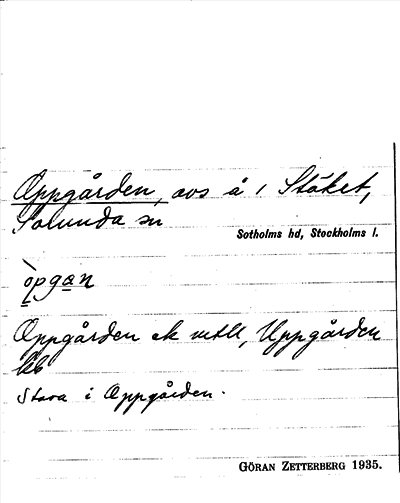 Oppgården, avs å 1 Stöket,
Sorunda sn
Sotholms hd, Stockholms l.
òpgan
Oppgården ek mtl, Uppgården
kb
Stava i Oppgården.
GÖRAN ZETTERBERG 1935.